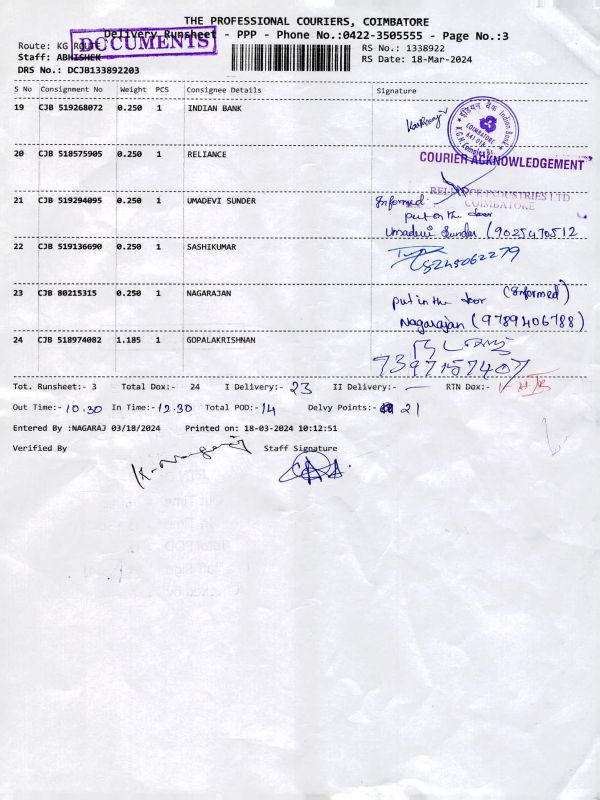 THE PROFESSIONAL COURIERS, COIMBATORE
Delivery Runsheet - PPP - Phone No.:0422-3505555 - Page No.:3
DOCUMENTS
Route: KG ROUTE
Staff: ABHISHEK
DRS No.: DCJB133892203
RS No.: 1338922
RS Date: 18-Mar-2024
S No Consignment No Weight PCS Consignee Details Signature
19 CJB 519268072 0.250 1 INDIAN BANK
इंडियन बैंक Indian Bank
COIMBATORE
641 018
K.G.H. Complex Br.
20 CJB 518575905 0.250 1 RELIANCE
COURIER ACKNOWLEDGEMENT
RELIANCE INDUSTRIES LTD
COIMBATORE
21 CJB 519294095 0.250 1 UMADEVI SUNDER
Informed
put on the door
Umadevi Sunder (9025470512
22 CJB 519136690 0.250 1 SASHIKUMAR
8245062279
23 CJB 80215315 0.250 1 NAGARAJAN
put in the door (Informed)
Nagarajan (9789406788)
24 CJB 518974082 1.185 1 GOPALAKRISHNAN
7397157407
Tot. Runsheet:- 3 Total Dox:- 24 I Delivery:- 23 II Delivery:- — RTN Dox:-
Out Time:- 10.30 In Time:- 12.30 Total POD:- 14 Delvy Points:- 21
Entered By :NAGARAJ 03/18/2024 Printed on: 18-03-2024 10:12:51
Verified By Staff Signature
K. Nagaraj